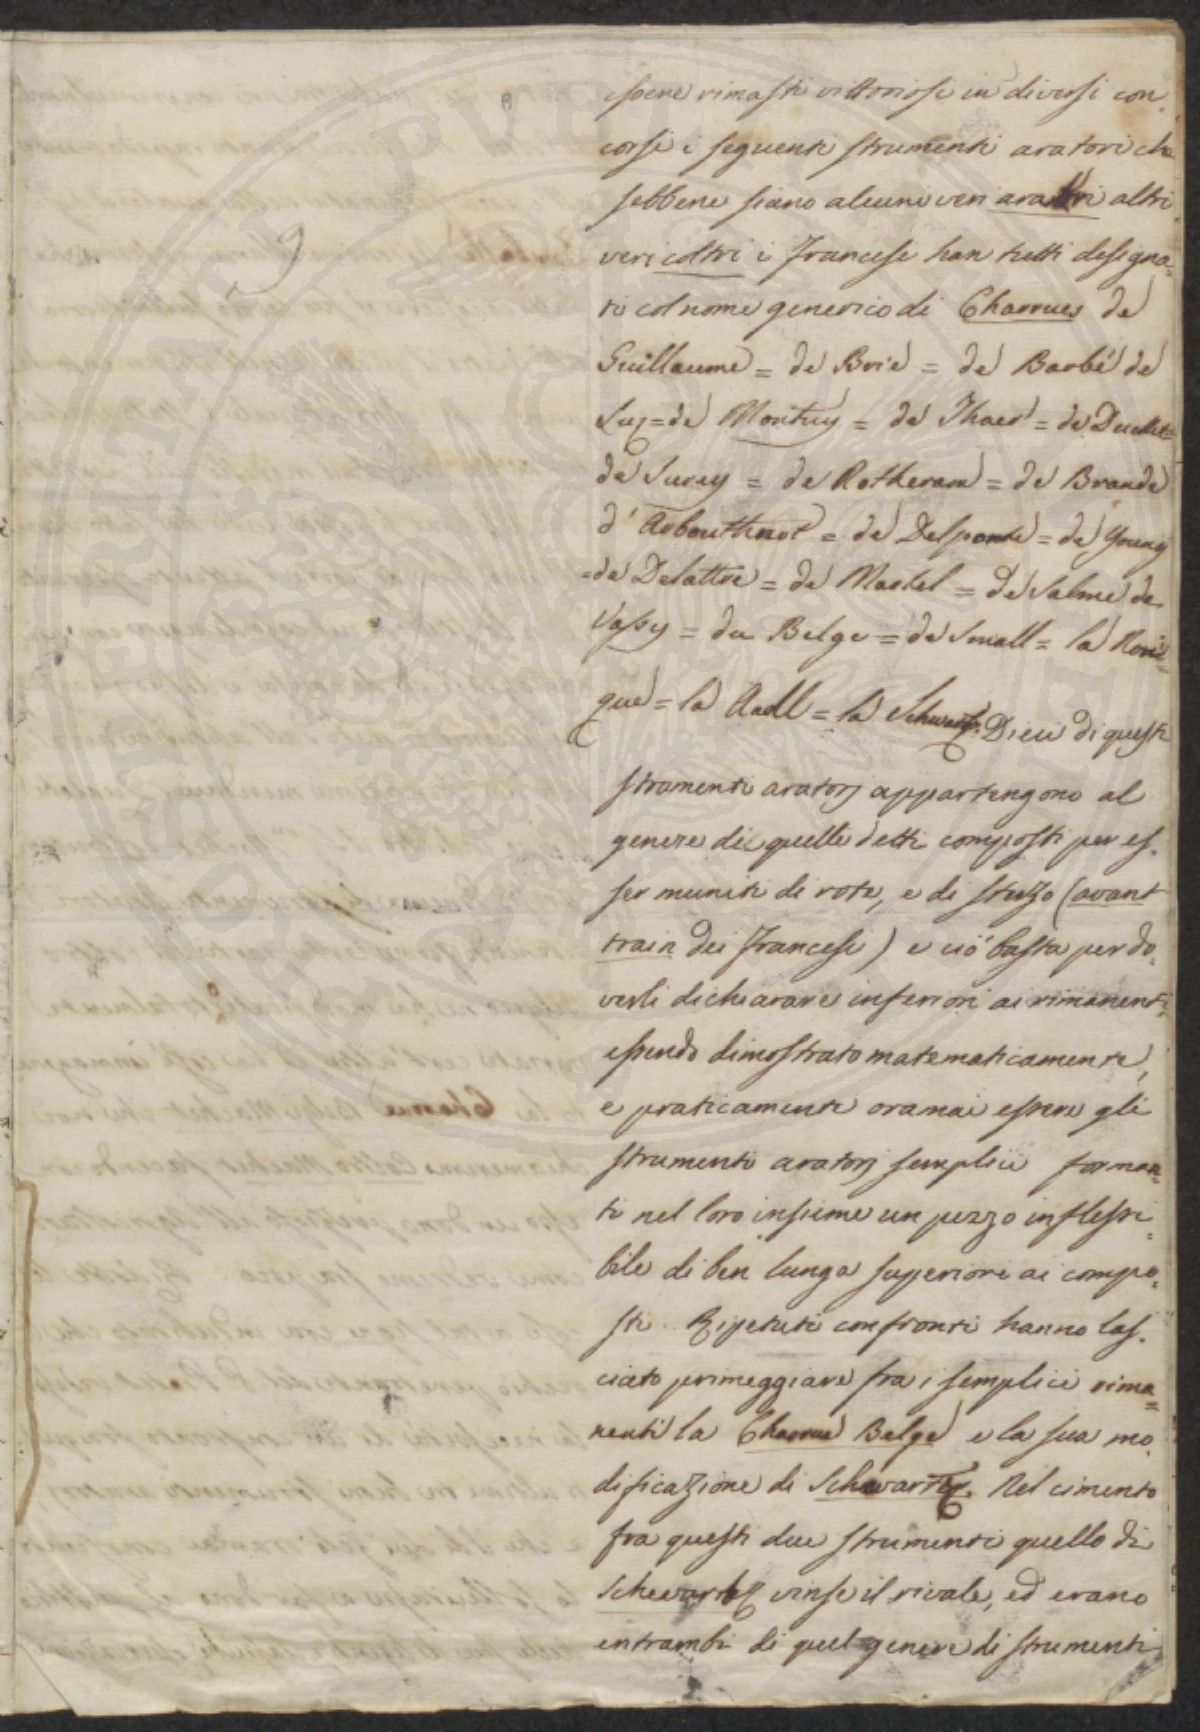 9
essere rimasti vittoriosi in diversi con-
corsi i seguenti strumenti aratori che
sebbene siano alcuni veri aratri altri
veri coltri i Francesi han tutti designa-
ti col nome generico di Charrues de
Guillaume = de Brie = de Barbé de
Luz = de Montuy = de Thaer = de
de Surey = de Rotheram = de Brande
d'Arbouthnot = de Delponte = de Young
= de Delattre = de Machel = de Salme de
Vassy = du Belge = de Small = la
que = la Aadl = la Schwartz. Dieci di questi
stromenti aratorj appartengono al
genere di quelli detti composti per es-
ser muniti di rote, e di sterzo (avant
train dei Francesi) e ciò basta per do-
verli dichiarare inferiori ai rimanenti
essendo dimostrato matematicamente,
e praticamente oramai essere gli
strumenti aratorj semplici forman-
ti nel loro insieme un pezzo inflessi-
bile di ben lunga superiori ai compo-
sti. Ripetuti confronti hanno las-
ciato primeggiare fra i semplici rima-
nenti la Charrue Belge e la sua mo-
dificazione di Schwartz. Nel cimento
fra questi due strumenti quello di
Schewartz vinse il rivale, ed erano
entrambi di quel genere di strumenti